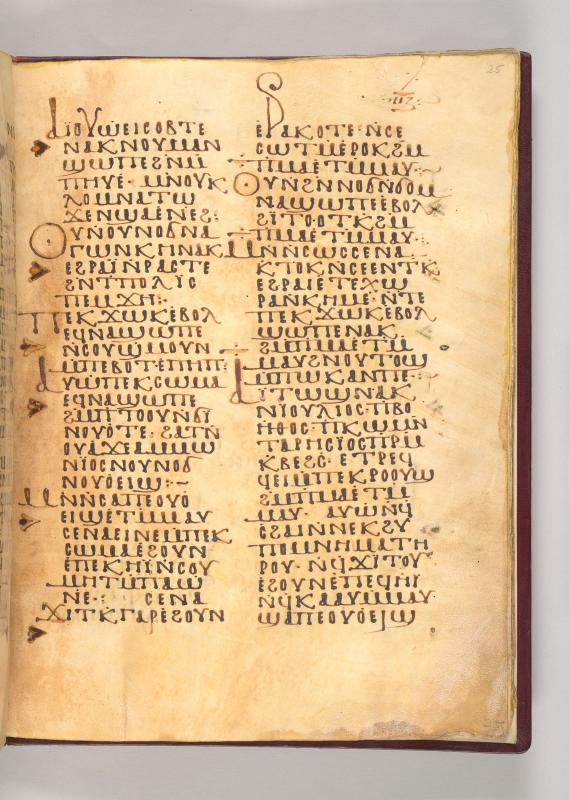 25
ⲁⲓⲟⲩⲱ ⲉⲓⲥⲟⲃⲧⲉ
ⲛⲁⲕ ⲛⲟⲩⲙⲁⲛ
ϣⲱⲡⲉ ϩⲛ ⲙ
ⲡⲏⲩⲉ· ⲙⲛ ⲟⲩⲕ
ⲗⲟⲙ ⲛⲁⲧⲱ
ϫⲉⲛ ϣⲁ ⲉⲛⲉϩ:
ⲟⲩⲛ ⲟⲩⲛⲟϭ ⲛⲁ
ⲅⲱⲛ ⲕⲏ ⲛⲁⲕ
ⲉϩⲣⲁⲓ̈ ⲛ̇ⲣⲁⲥⲧⲉ
ϩⲛ ⲧⲡⲟⲗⲓⲥ
ⲡⲉⲙϫⲏ:
ⲡⲉⲕϫⲱⲕ ⲉⲃⲟⲗ
ⲉϥⲛⲁϣⲱⲡⲉ
ⲛ̇ⲥⲟⲩϣⲙⲟⲩⲛ
ⲙ̇ⲡⲉⲃⲟⲧ ⲉⲡⲏⲡ:
ⲁⲩⲱ ⲡⲉⲕⲥⲱⲙⲁ
ⲉϥⲛⲁϣⲱⲡⲉ
ϩⲙ ⲡⲧⲟⲟⲩ ⲛ̇ϭⲓ
ⲛⲟⲩⲟⲧⲉ· ϩⲁⲧⲛ̇
ⲟⲩⲁϩⲉ ⲙⲙⲱ
ⲛⲓⲟⲥ ⲛⲟⲩⲛⲟϭ
ⲛⲟⲩⲟⲉⲓϣ:—
ⲙⲛ̇ⲛⲥⲁ ⲡⲉⲟⲩⲟ̇
ⲉⲓϣ ⲉ̇ⲧⲙⲙⲁⲩ
ⲥⲉⲛⲁⲉⲓⲛⲉ ⲙ̇ⲡⲉⲕ
ⲥⲱⲙⲁ ⲉϩⲟⲩⲛ
ⲉ̇ⲡⲉⲕⲏⲓ̈ ⲛ̇ⲥⲟⲩ
ⲙⲛⲧⲏ ⲙⲡⲁϣ
ⲛⲉ·: ⲥⲉⲛⲁ
ϫⲓⲧⲕ̇ ⲅⲁⲣ ⲉϩⲟⲩⲛ
ⲉ̇ⲣⲁⲕⲟⲧⲉ· ⲛ̇ⲥⲉ
ⲥⲱⲧⲙ̇ ⲉⲣⲟⲕ ϩⲙ
ⲡⲙⲁ ⲉ̇ⲧⲙⲙⲁⲩ·
ⲟⲩⲛ ϩⲛⲛⲟϭ ⲛ̇ϭⲟⲙ
ⲛⲁϣⲱⲡⲉ ⲉⲃⲟⲗ
ϩⲓⲧⲟⲟⲧⲕ ϩⲙ
ⲡⲙⲁ ⲉ̇ⲧⲙⲙⲁⲩ·
ⲙⲛ̇ⲛⲥⲱⲥ ⲥⲉⲛⲁ
ⲕⲧⲟⲕ ⲛ̇ⲥⲉⲉⲛⲧⲕ
ⲉϩⲣⲁⲓ ⲉⲧⲉⲭⲱ
ⲣⲁ ⲛⲕⲏⲙⲉ· ⲛ̇ⲧⲉ
ⲡⲉⲕϫⲱⲕ ⲉⲃⲟⲗ
ϣⲱⲡⲉ ⲛⲁⲕ
ϩⲙ ⲡⲙⲁ ⲉⲧⲙ
ⲙⲁⲩ ϩⲛⲟⲩⲧⲟϣ
ⲙ̇ⲡⲱⲕ ⲁⲛ ⲡⲉ·:
ⲁⲓⲧⲱⲱⲛ ⲁⲕ
ⲛⲓⲟⲩⲗⲓⲟⲥ ⲡⲃⲟ
ⲏⲑⲟⲥ· ⲡⲕⲱⲙⲛ̄
ⲧⲁⲣⲏⲥⲓ̈ⲟⲥ ⲡⲣⲙ
ⲕⲃⲉϩⲥ· ⲉⲧⲣⲉϥ
ϥⲉⲓ ⲙⲡⲉⲕⲣⲟⲟⲩϣ
ϩⲙ ⲡⲙⲁ ⲉⲧⲙ
ⲙⲁⲩ· ⲁⲩⲱ ⲛϥ̇
ⲥϩⲁⲓ ⲛⲛⲉⲕϩⲩ
ⲡⲟⲙⲛⲏⲙⲁ ⲧⲏ
ⲣⲟⲩ· ⲛϥ̇ϫⲓⲧⲟⲩ
ⲉϩⲟⲩⲛ ⲉ̇ⲡⲉϥⲏⲓ
ⲛ̇ϥⲕⲁⲁⲩ ⲙ̇ⲙⲁⲩ
ϣⲁ ⲡⲉⲟⲩⲟ̇ⲉⲓϣ